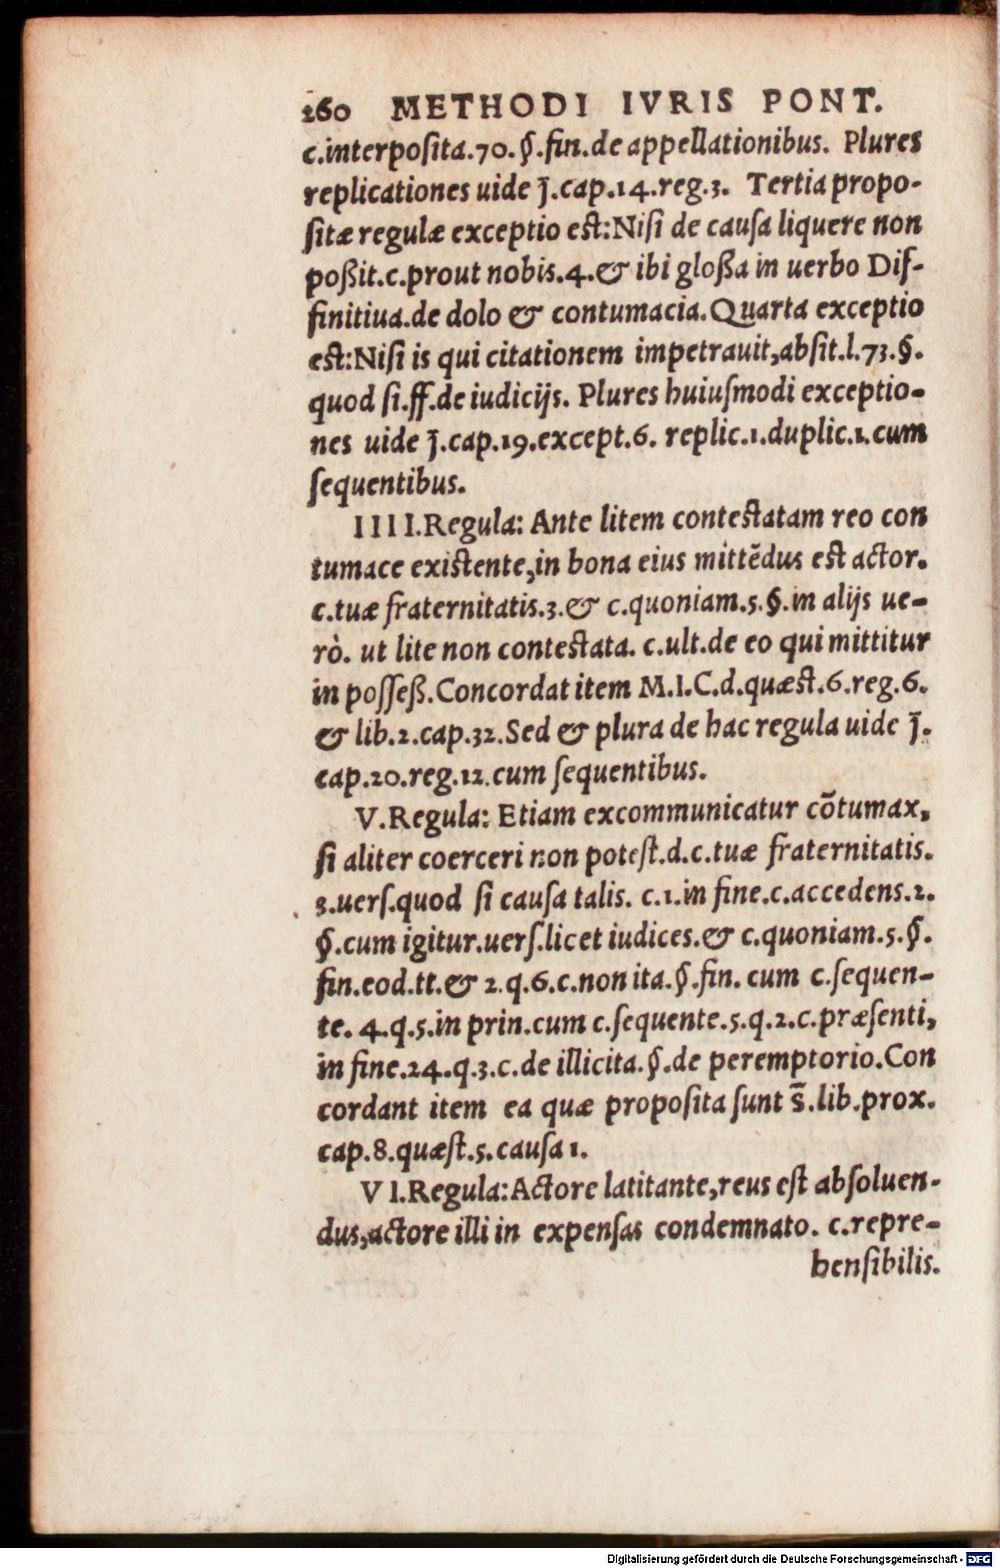 260 METHODI IVRIS PONT.
c.interpoſita.70.§.fin.de appellationibus. Plures
replicationes uide j̄.cap.14.reg.3. Tertia propo-
ſitæ regulæ exceptio est:Niſi de cauſa liquere non
poßit.c.prout nobis.4.& ibi gloßa in uerbo Diſ-
finitiua.de dolo & contumacia.Quarta exceptio
est:Niſi is qui citationem impetrauit,abſit.l.73.§.
quod ſi.ff.de iudicijs. Plures huiuſmodi exceptio-
nes uide j̄.cap.19.except.6. replic.1.duplic.1.cum
ſequentibus.
IIII.Regula: Ante litem contestatam reo con
tumace existente,in bona eius mittẽdus est actor.
c.tuæ fraternitatis.3.& c.quoniam.5.§.in alijs ue-
rò. ut lite non contestata. c.ult.de eo qui mittitur
in poſſeß.Concordat item M.I.C.d.quæst.6.reg.6.
& lib.2.cap.32.Sed & plura de hac regula uide j̄.
cap.20.reg.12.cum ſequentibus.
V.Regula: Etiam excommunicatur cõtumax,
ſi aliter coerceri non poteſt.d.c.tuæ fraternitatis.
3.uerſ.quod ſi cauſa talis. c.1.in fine.c.accedens.2.
§.cum igitur.uerſ.licet iudices.& c.quoniam.5.§.
fin.eod.tt.& 2.q.6.c.non ita.§.fin. cum c.ſequen-
te. 4.q.5.in prin.cum c.ſequente.5.q.2.c.præſenti,
in fine.24.q.3.c.de illicita.§.de peremptorio.Con
cordant item ea quæ propoſita ſunt s̄.lib.prox.
cap.8.quæſt.5.cauſa 1.
VI.Regula:Actore latitante,reus eſt abſoluen-
dus,actore illi in expenſas condemnato. c.repre-
henſibilis.
Digitalisierung gefördert durch die Deutsche Forschungsgemeinschaft - DFG